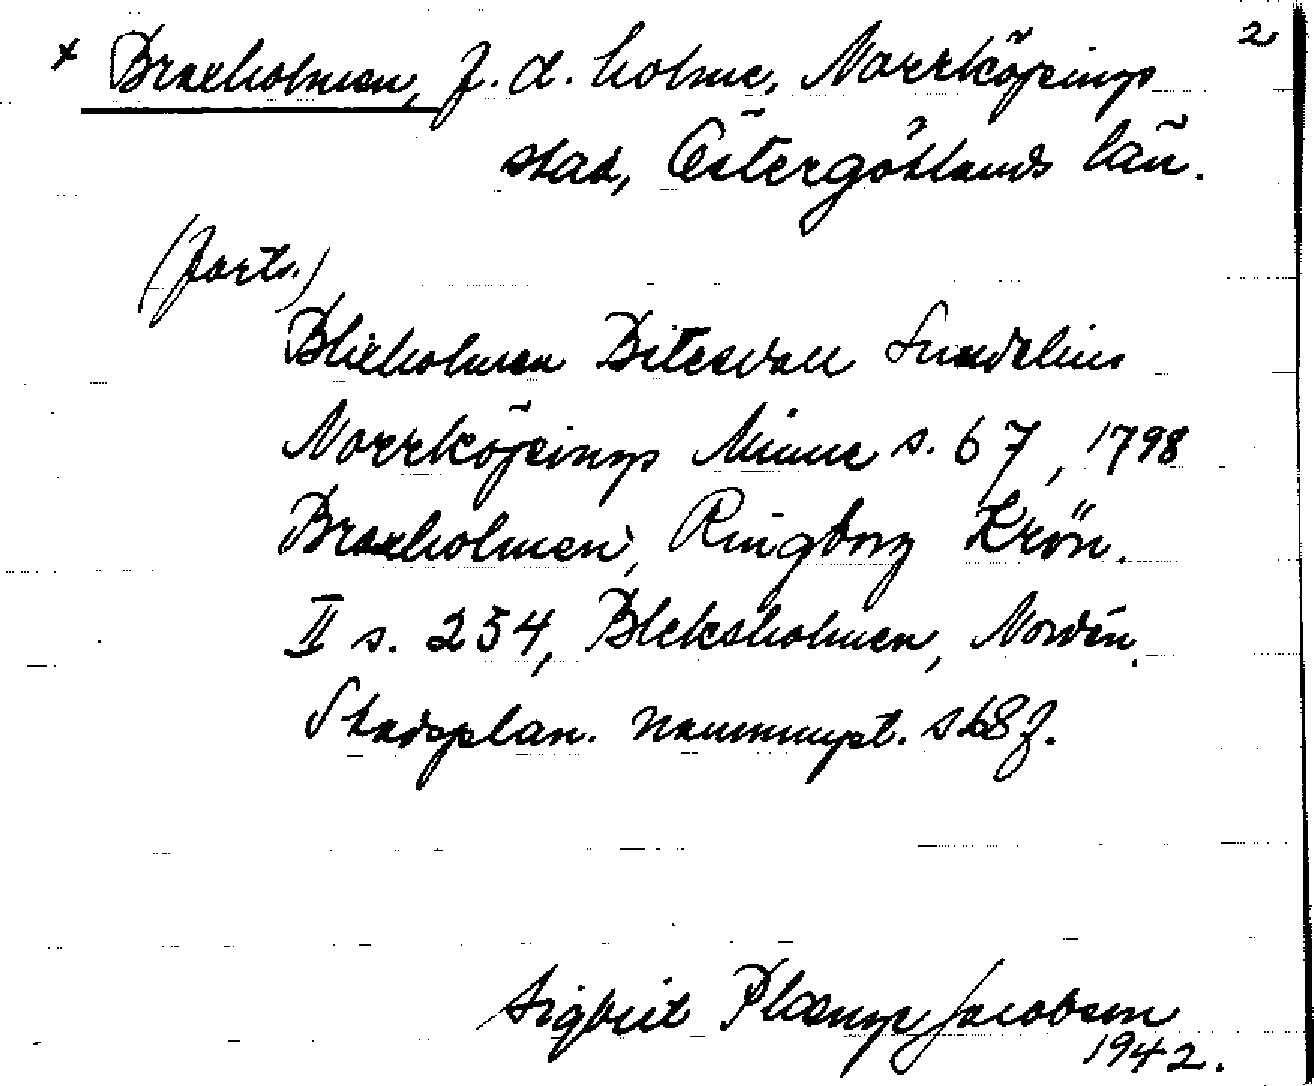 2
x Braxholmen, f. d. holme, Norrköpings
stad, Östergötlands län.
(forts.)
Blixholmen Sundelius
Norrköpings Minne s. 67, 1798
Braxholmen, Ringborg Krön.
II s. 254, Bleksholmen, Nordén
Stadsplan. s 68 f.
Sigbrit Plænge Jacobson
1942.